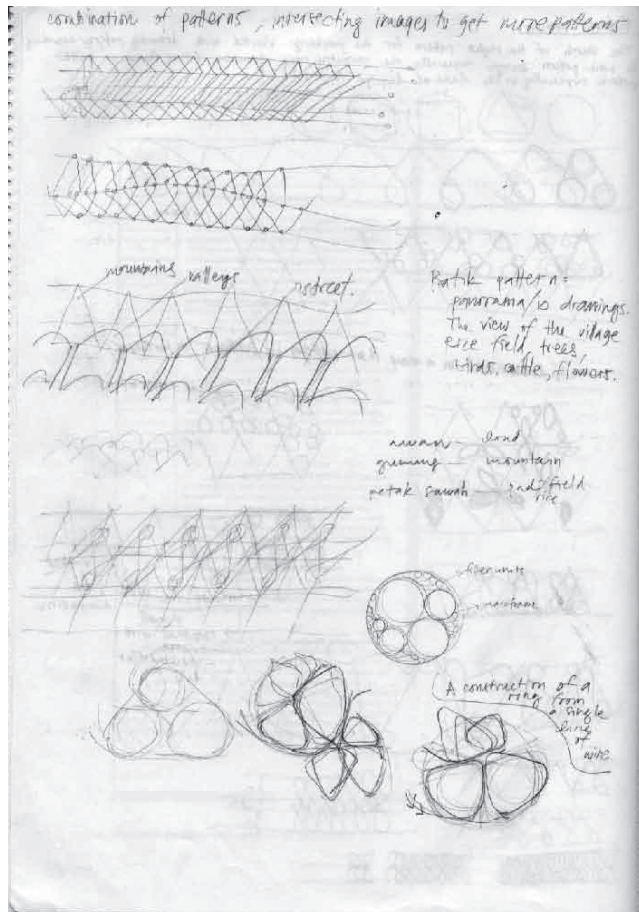 combination of patterns, intersecting images to get more patterns
mountains
valleys
street.
Batik pattern =
panorama/ drawings.
The view of the village
rice field, trees,
birds, cattle, flowers.
awan — land
gunung — mountain
petak sawah — field
rice
fiber units
A construction of a
ring from
a single
string
of
wire